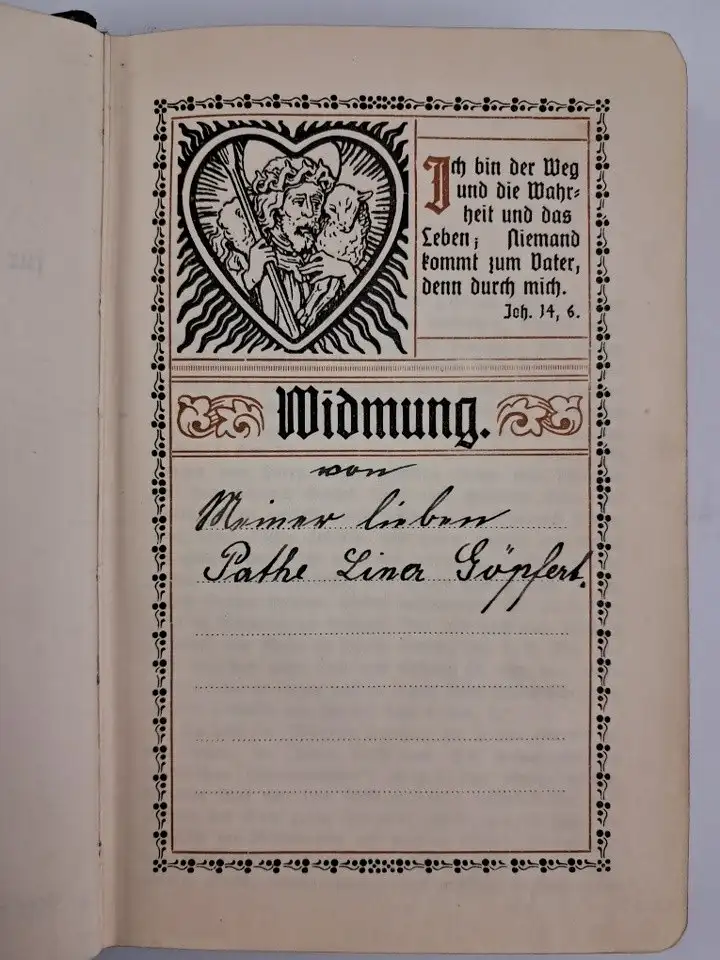 Ich bin der Weg
und die Wahr-
heit und das
Leben; Niemand
kommt zum Vater,
denn durch mich.
Joh. 14, 6.
Widmung.
von
Meiner lieben
Pathe Lina Göpfert.